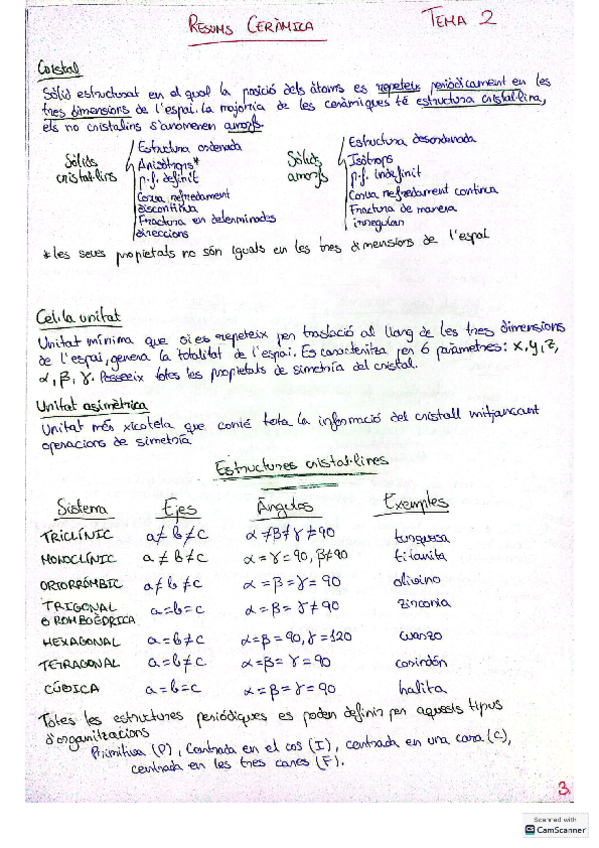 RESUMS CERÀMICA TEMA 2
Cristal
Sòlid estructurat en el qual la posició dels àtoms es repeteix periòdicament en les
tres dimensions de l'espai. La majoria de les ceràmiques té estructura cristal·lina,
els no cristalins s'anomenen amorfs.
Sòlids cristal·lins
Estructura ordenada
Anisòtrops*
p.f. definit
Corva refredament
discontinua
Fractura en determinades
direccions
Sòlids amorfs
Estructura desordenada
Isòtrops
p.f. indefinit
Corva refredament continua
Fractura de manera
irregular
*les seues propietats no són iguals en les tres dimensions de l'espai
Cel·la unitat
Unitat mínima que si es repeteix per traslació al llarg de les tres dimensions
de l'espai, genera la totalitat de l'espai. Es caracteritza per 6 paràmetres: x, y, z,
α, β, γ. Posseeix totes les propietats de simetría del cristal.
Unitat asimètrica
Unitat més xicoteta que conté tota la informació del cristall mitjançant
operacions de simetría
Estructures cristal·lines
Sistema Ejes Ángulos Exemples
TRICLÍNIC a≠b≠c α≠β≠γ≠90 turquesa
MONOCLÍNIC a≠b≠c α=γ=90, β≠90 titanita
ORTORRÓMBIC a≠b≠c α=β=γ=90 olivino
TRIGONAL
O ROMBOÈDRICA a=b=c α=β=γ≠90 zinconia
HEXAGONAL a=b≠c α=β=90, γ=120 cuarzo
TETRAGONAL a=b≠c α=β=γ=90 corindón
CÚBICA a=b=c α=β=γ=90 halita
Totes les estructures periódiques es poden definir per aquests tipus
d'organitzacions
Primitiva (P), Centrada en el cos (I), centrada en una cara (C),
centrada en les tres cares (F).
3
Scanned with
CS CamScanner